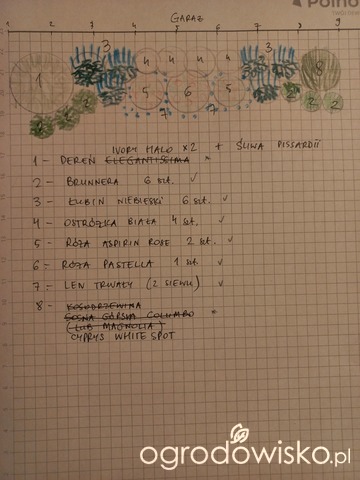 POŁNO
GARAŻ
1 2 3 4 5 6 7 8 9
3 3
4 4 4 4
1 8
5 6 5
2 2 2 7 7 2 2 2
IVORY HALO x2 + ŚLIWA PISSARDII
1 - DEREŃ ELEGANTISSIMA *
2 - BRUNNERA 6 szt. ✓
3 - ŁUBIN NIEBIESKI 6 szt. ✓
4 - OSTRÓŻKA BIAŁA 4 szt. ✓
5 - RÓŻA ASPIRIN ROSE 2 szt. ✓
6 - RÓŻA PASTELLA 1 szt. ✓
7 - LEN TRWAŁY (Z SIEWU) ✓
8 - KOSODRZEWINA
SOSNA GÓRSKA COLUMBO *
(LUB MAGNOLIA)
CYPRYS WHITE SPOT
ogrodowisko.pl